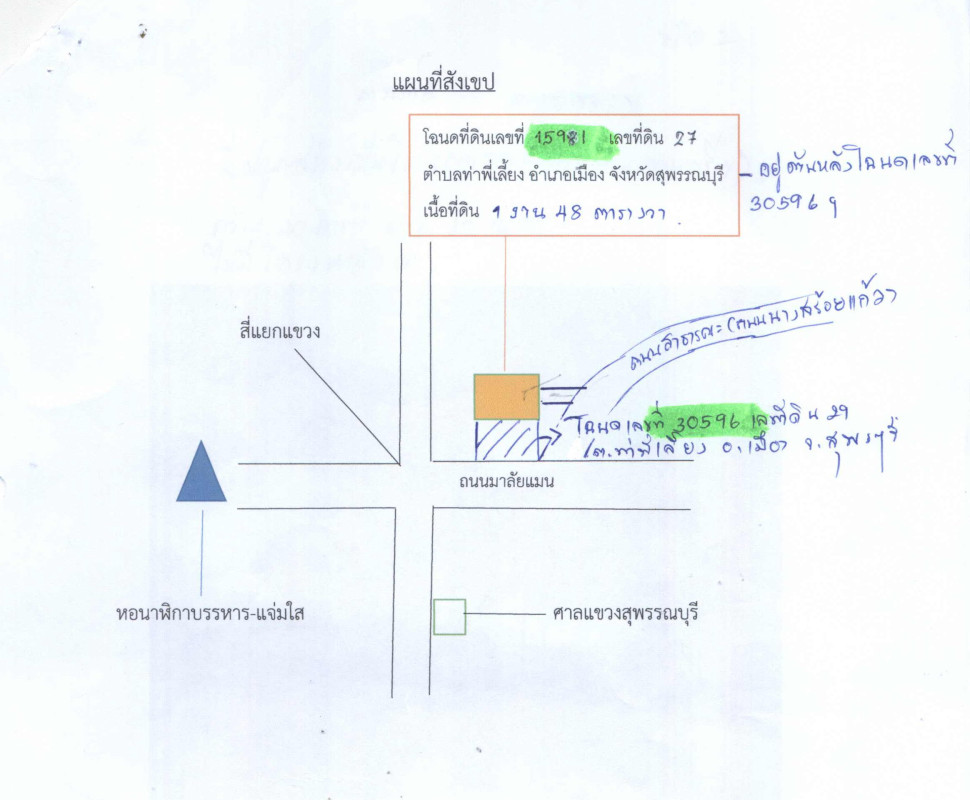 แผนที่สังเขป
โฉนดที่ดินเลขที่ 15981 เลขที่ดิน 27
ตำบลท่าพี่เลี้ยง อำเภอเมือง จังหวัดสุพรรณบุรี
เนื้อที่ดิน 1 งาน 48 ตารางวา
อยู่ด้านหลังโฉนดเลขที่
30596 ฯ
สี่แยกแขวง
ถนนสาธารณะ (ถนนนางสร้อยแก้ว)
โฉนดเลขที่ 30596 เลขที่ดิน 29
(ต.ท่าพี่เลี้ยง อ.เมือง จ.สุพรรณบุรี
ถนนมาลัยแมน
หอนาฬิกาบรรหาร-แจ่มใส
ศาลแขวงสุพรรณบุรี